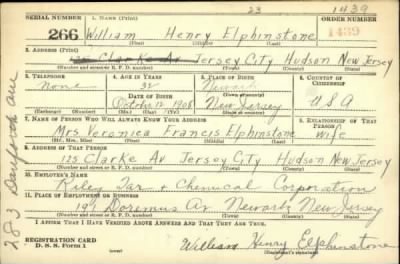 23 1439
SERIAL NUMBER 1. NAME (Print) ORDER NUMBER
266 William Henry Elphinstone 1439
(First) (Middle) (Last)
2. ADDRESS (Print)
Clarke Av Jersey City Hudson New Jersey
(Number and street or R. F. D. number) (Town) (County) (State)
3. TELEPHONE 4. AGE IN YEARS 5. PLACE OF BIRTH 6. COUNTRY OF CITIZENSHIP
None 32 Newark
DATE OF BIRTH (Town or county)
October 12 1908 New Jersey USA
(Exchange) (Number) (Mo.) (Day) (Yr.) (State or country)
7. NAME OF PERSON WHO WILL ALWAYS KNOW YOUR ADDRESS 8. RELATIONSHIP OF THAT PERSON
Mrs Veronica Francis Elphinstone Wife
(Mr., Mrs., Miss) (First) (Middle) (Last)
9. ADDRESS OF THAT PERSON
125 Clarke Av Jersey City Hudson New Jersey
(Number and street or R. F. D. number) (Town) (County) (State)
10. EMPLOYER'S NAME
Riley Tar & Chemical Corporation
11. PLACE OF EMPLOYMENT OR BUSINESS
191 Doremus Av Newark New Jersey
(Number and street or R. F. D. number) (Town) (County) (State)
I AFFIRM THAT I HAVE VERIFIED ABOVE ANSWERS AND THAT THEY ARE TRUE.
REGISTRATION CARD
D. S. S. Form 1 William Henry Elphinstone
(Registrant's signature)
283 Danforth ave